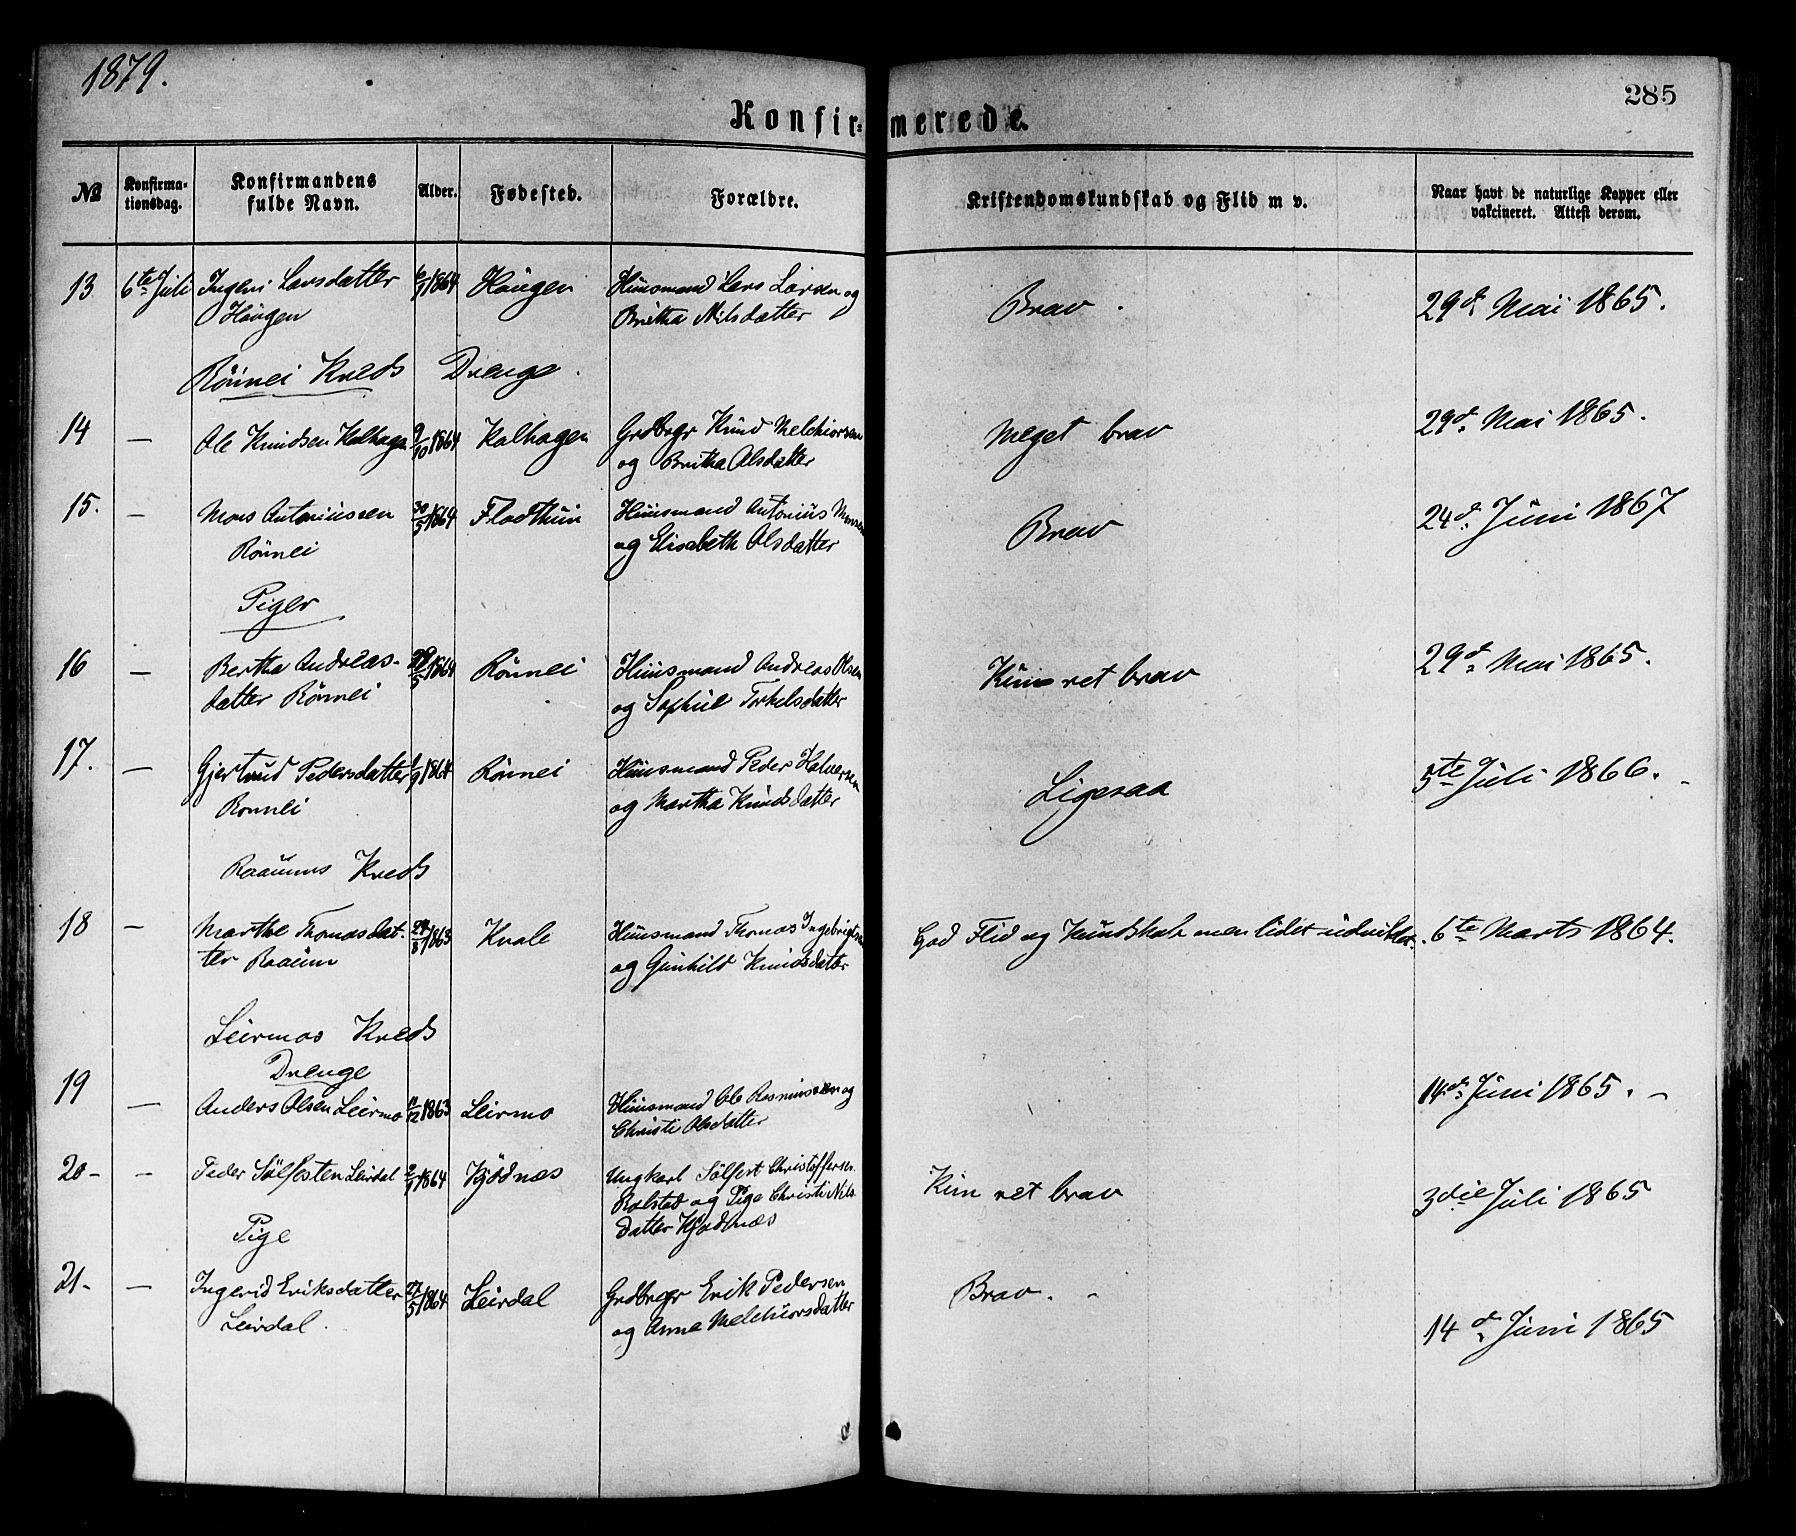 1879.
285
Konfirmerede.
No Konfirmationsdag. Konfirmandens fulde Navn. Alder. Fødested. Forældre. Kristendomskundskab og Flid m v. Naar havt de naturlige Kopper eller vakcineret. Attest derom.
13 6te Juli Ingeri Larsdatter 6/9 1864 Haugen Huusmand Lars Larsen og Brav. 29d Mai 1865.
Haugen Britha Nilsdatter
Rönnei Kreds Drenge.
14 — Ole Knudsen Kalhagen 9/10 1864 Kalhagen Grdbrgr Knud Melchiorsen Meget brav 29d. Mai 1865.
og Britha Olsdatter
15. — Mons Antoniussen 30/5 1864 Flodthun Huusmand Antonius Monsen Brav 24d. Juni 1867
Rönnei og Elisabeth Olsdatter
Piger
16 — Bertha Andreas- 1864 Rönnei Huusmand Andreas Olsen Kun ret brav 29d. Mai 1865.
datter Rönnei og Sophie Torkelsdatter
17. — Gjertrud Pedersdatter 1/9 1864 Rönnei Huusmand Peder Halversen Ligesaa 5te Juli 1866. -
Ronnei og Martha Knudsdatter
Raaums Kreds
18 — Marthe Thomasdat- 1863 Kvale Huusmand Thomas Ingebrigtsen God Flid og Kundskab men lidet udviklet. 6te Marts 1864.
ter Raaum og Gunhild Knudsdatter
Leirmos Kreds
Drenge
19 — Anders Olsen Leirmo 11/12 1863 Leirmo Huusmand Ole Rasmussen og 14d. Juni 1865. -
Christi Olsdatter
20- — Peder Sölfesten Leirdal 2/9 1864 Kjödnæs Ungkarl Sölfest Christoffersen Kun ret brav 3die Juli 1865
Rolstad og Pige Christi Nils-
datter Kjödnæs
Pige
21- — Ingerid Eriksdatter 27/5 1864 Leirdal Grdbrgr Erik Pedersen Brav. - 14d. Juni 1865
Leirdal. og Anna Melchiorsdatter